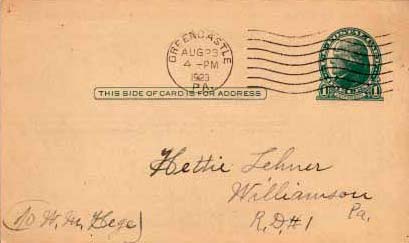 GREENCASTLE
AUG 23
4-PM
1923
PA.
THIS SIDE OF CARD IS FOR ADDRESS
1 1
Hettie Lehner
Williamson
Pa.
R, D#1
W. M. Hege)